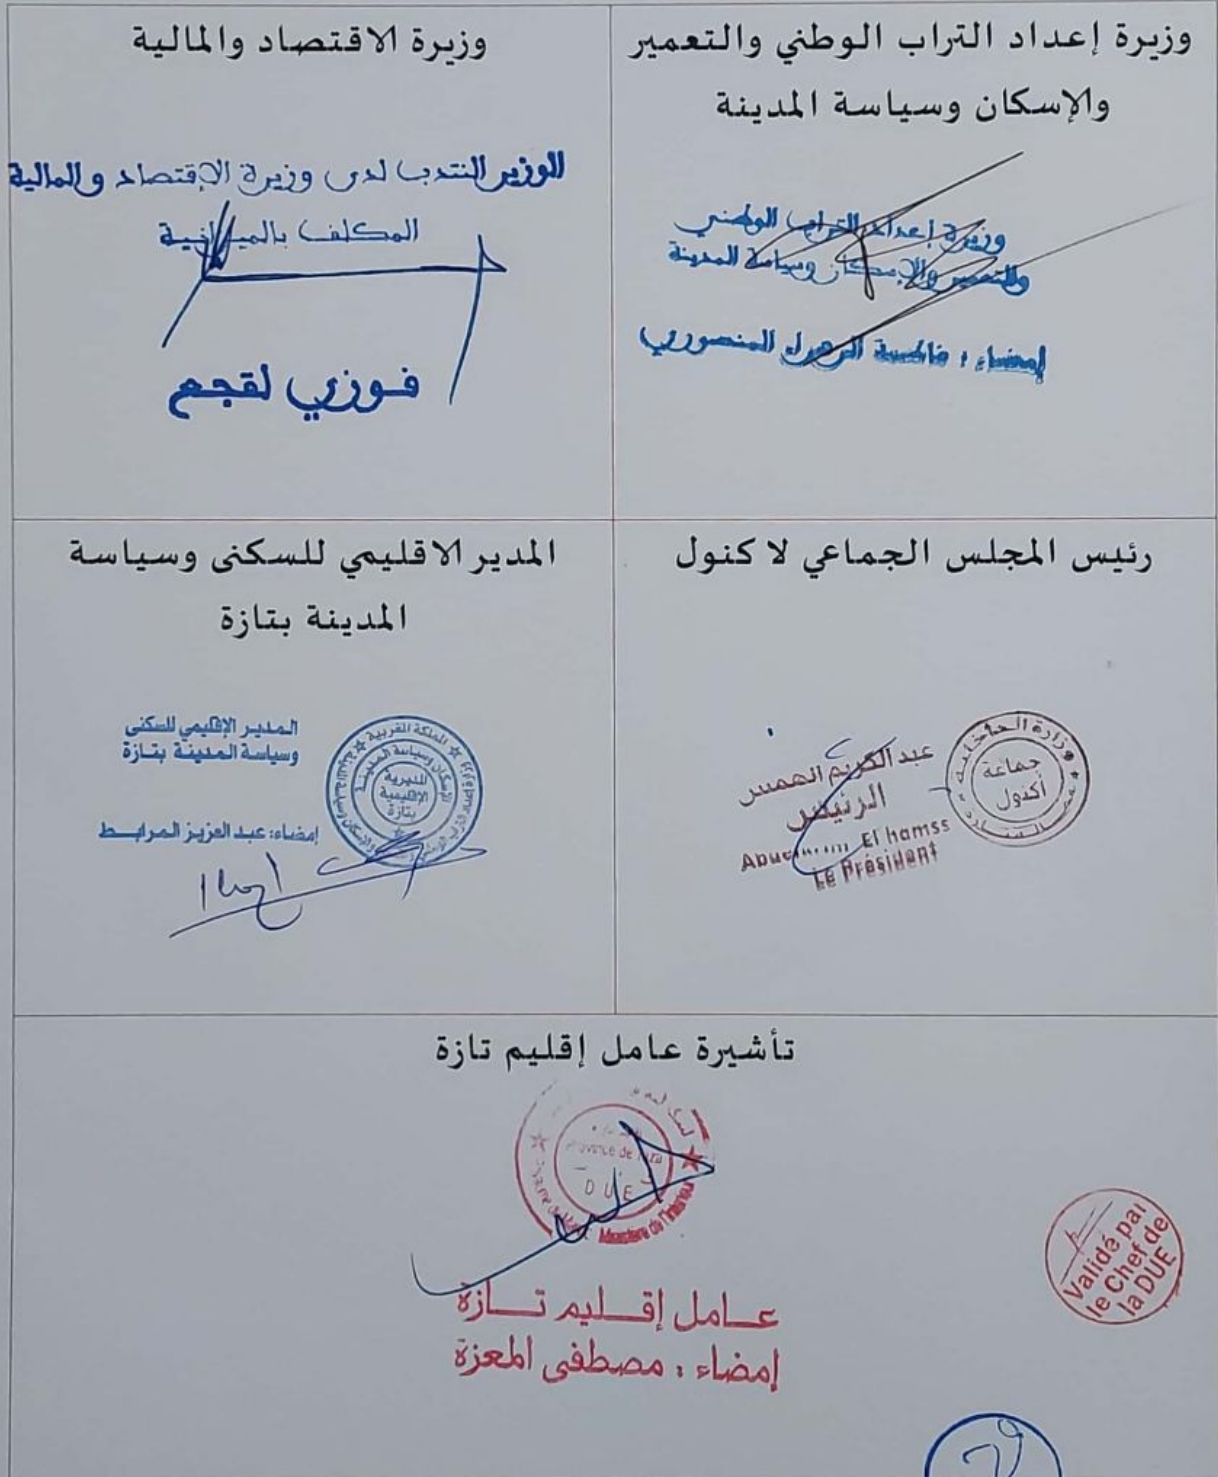 وزيرة إعداد التراب الوطني والتعمير
والإسكان وسياسة المدينة
وزيرة إعداد التراب الوطني
والتعمير والإسكان وسياسة المدينة
إمضاء : فاطمة الزهراء المنصوري
وزيرة الاقتصاد والمالية
الوزير المنتدب لدى وزيرة الإقتصاد والمالية
المكلف بالميزانية
فوزي لقجع
رئيس المجلس الجماعي لاكنول
عبد الكريم الهمس
الرئيس
El hamss
Le Président
وزارة الداخلية
جماعة
أكنول
المدير الاقليمي للسكنى وسياسة
المدينة بتازة
المدير الإقليمي للسكنى
وسياسة المدينة بتازة
إمضاء: عبد العزيز المرابط
المملكة المغربية
المديرية
الإقليمية
بتازة
تأشيرة عامل إقليم تازة
Province de Taza
DUE
Ministère de l'Intérieur
عامل إقليم تازة
إمضاء : مصطفى المعزة
Validé par
le Chef de
la DUE